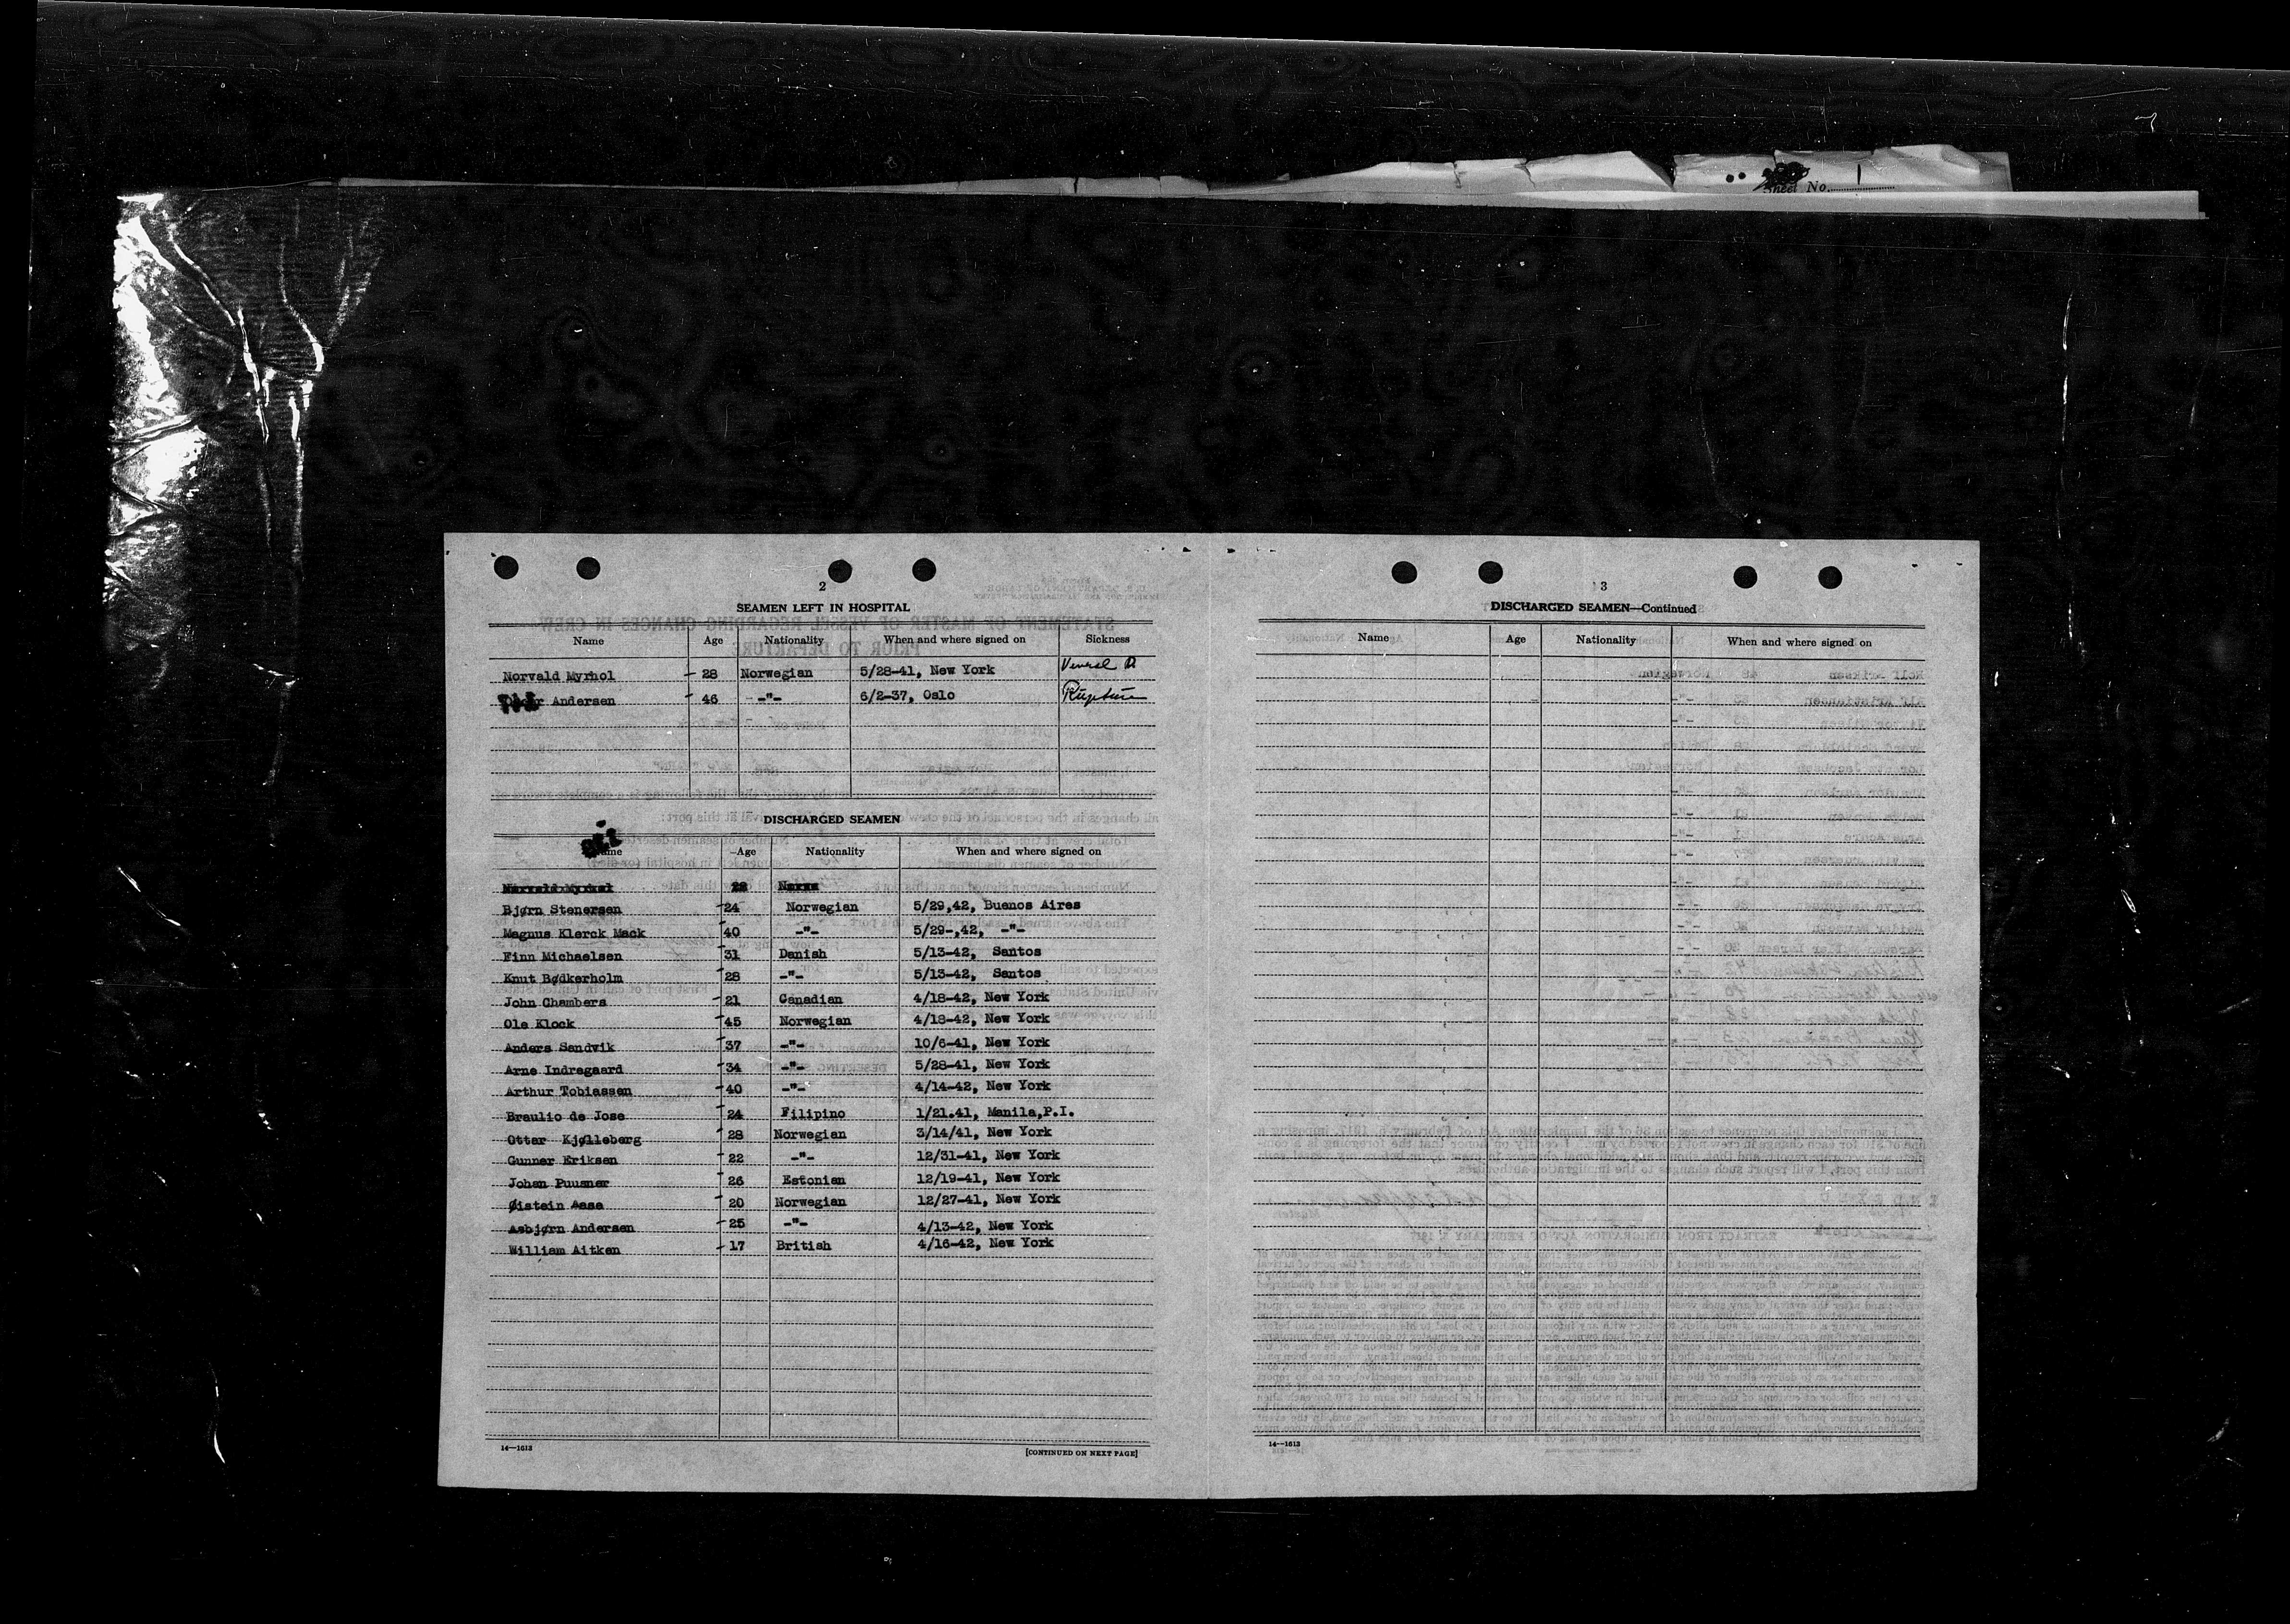 Sheet No. 1
2
SEAMEN LEFT IN HOSPITAL
Name Age Nationality When and where signed on Sickness
Norvald Myrhol - 28 Norwegian 5/28-41, New York
Andersen - 46 -"- 6/2-37, Oslo Rupture
DISCHARGED SEAMEN
Name Age Nationality When and where signed on
Norvald Myrhol 28
Bjørn Stenersen -24 Norwegian 5/29,42, Buenos Aires
Magnus Klerck Mack 40 -"- 5/29-,42, -"-
Finn Michaelsen 31 Danish 5/13-42, Santos
Knut Bødkerholm 28 -"- 5/13-42, Santos
John Chambers -21 Canadian 4/18-42, New York
Ole Klock -45 Norwegian 4/18-42, New York
Anders Sandvik -37 -"- 10/6-41, New York
Arne Indregaard -34 -"- 5/28-41, New York
Arthur Tobiassen -40 -"- 4/14-42, New York
Braulio de Jose -24 Filipino 1/21.41, Manila,P.I.
Ottar Kjølleberg -28 Norwegian 3/14/41, New York
Gunnar Eriksen -22 -"- 12/31-41, New York
Johan Puusmar -26 Estonian 12/19-41, New York
Øistein Aasa -20 Norwegian 12/27-41, New York
Asbjørn Andersen -25 -"- 4/13-42, New York
William Aitken -17 British 4/16-42, New York
14—1613 [CONTINUED ON NEXT PAGE]
3
DISCHARGED SEAMEN—Continued
Name Age Nationality When and where signed on
14—1613